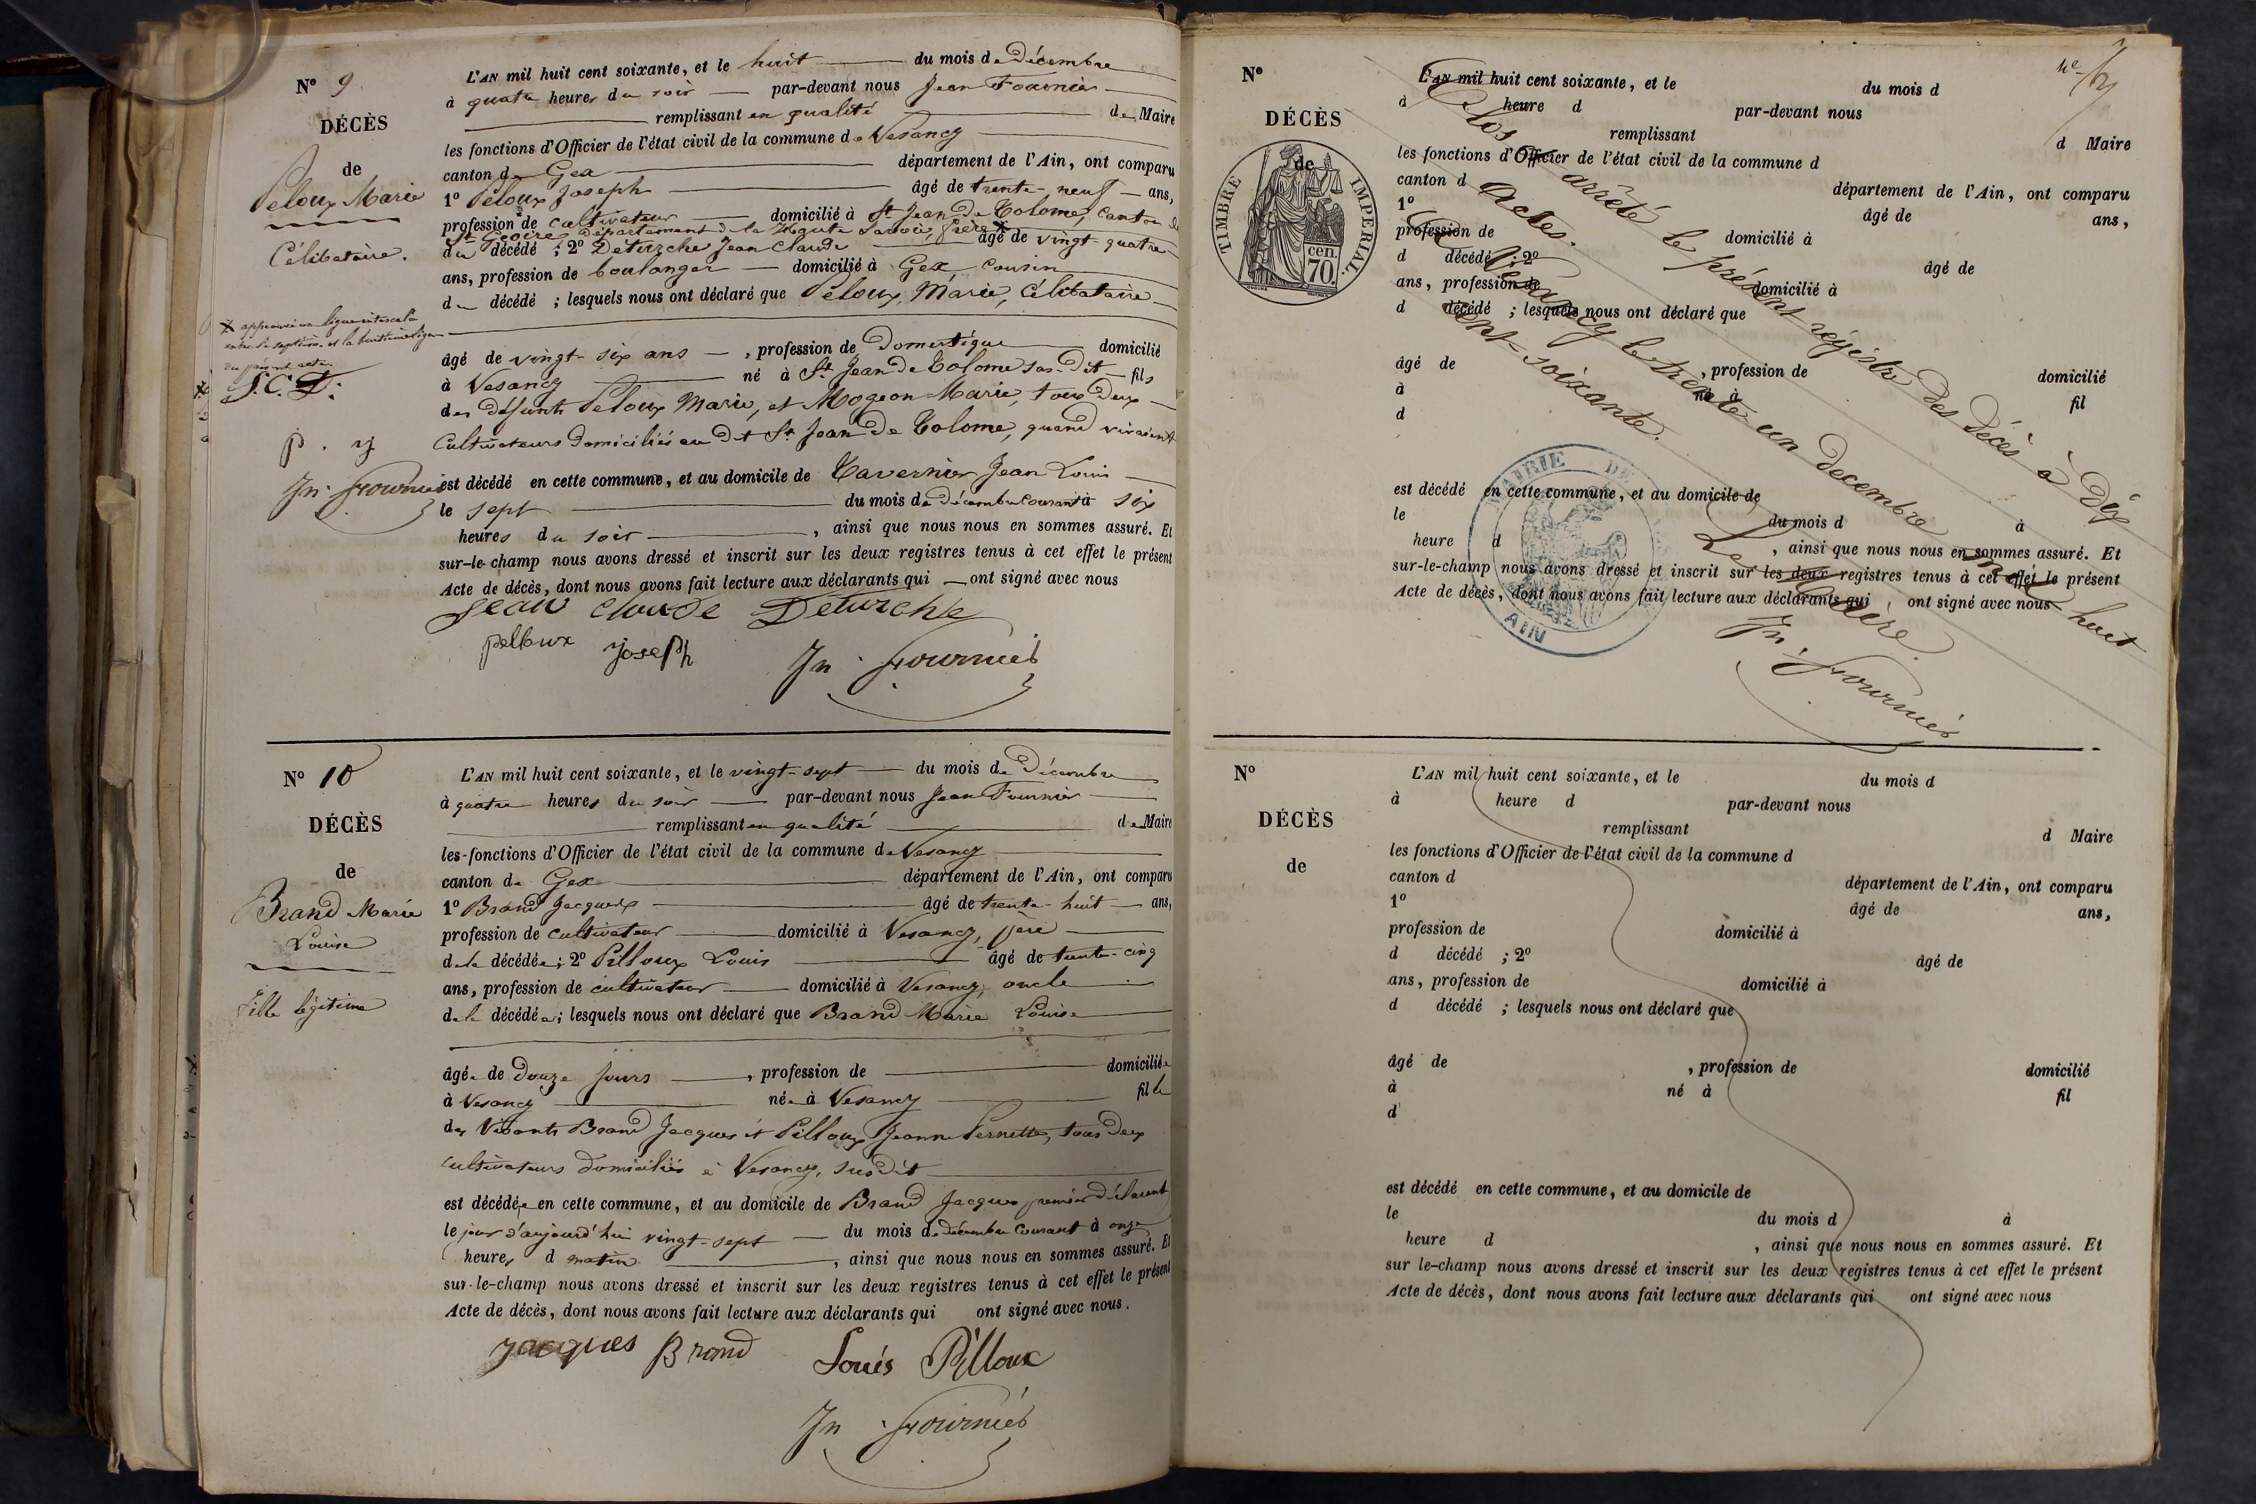 Nº 9
DÉCÈS
de
Peloux Marie
Célibataire.
X approuvé une ligne intercalée
entre la septième et la huitième ligne
du présent acte
J. C. D.
p. j
Jn. Fournier
L'AN mil huit cent soixante, et le huit du mois de Décembre
à quatre heures du soir par-devant nous Jean Fournier
remplissant en qualité de Maire
les fonctions d'Officier de l'état civil de la commune de Vesancy
canton de Gex département de l'Ain, ont comparu
1º Péloux Joseph âgé de trente-neuf ans,
profession de cultivateur domicilié à St Jean de Tolome, canton de
St Jeoire, département de la Haute Savoie, frère X
du décédé ; 2º Déturche Jean Claude âgé de vingt-quatre
ans, profession de boulanger domicilié à Gex, cousin
du décédé ; lesquels nous ont déclaré que Péloux, Marie, Célibataire
âgé de vingt-six ans , profession de Domestique domicilié
à Vesancy né à St Jean de Tolome sus-dit fils
des défunts Peloux Marie, et Mogeon Marie, tous deux
cultivateurs domiciliés au dt St Jean de Tolome, quand vivaient
est décédé en cette commune, et au domicile de Tavernier Jean Louis
le sept du mois de décembre courant à six
heures du soir , ainsi que nous nous en sommes assuré. Et
sur-le-champ nous avons dressé et inscrit sur les deux registres tenus à cet effet le présent
Acte de décès, dont nous avons fait lecture aux déclarants qui ont signé avec nous
Jean Claude Déturche
pelloux Joseph
Jn. Fournier
Nº 10
DÉCÈS
de
Brand Marie
Louise
Fille légitime
L'AN mil huit cent soixante, et le vingt-sept du mois de Décembre
à quatre heures du soir par-devant nous Jean Fournier
remplissant en qualité de Maire
les fonctions d'Officier de l'état civil de la commune de Vesancy
canton de Gex département de l'Ain, ont comparu
1º Brand Jacques âgé de trente-huit ans,
profession de cultivateur domicilié à Vesancy, père
de la décédée ; 2º Pilloux Louis âgé de trente-cinq
ans, profession de cultivateur domicilié à Vesancy, oncle
de la décédée ; lesquels nous ont déclaré que Brand Marie Louise
âgée de Douze jours , profession de domiciliée
à Vesancy née à Vesancy fille
des vivants Brand Jacques et Pilloux Jeanne Pernette, tous deux
cultivateurs domiciliés à Vesancy, susdit
est décédée en cette commune, et au domicile de Brand Jacques premier déclarant
le jour d'aujourd'hui vingt-sept du mois de décembre courant à onze
heures d matin , ainsi que nous nous en sommes assuré. Et
sur-le-champ nous avons dressé et inscrit sur les deux registres tenus à cet effet le présent
Acte de décès, dont nous avons fait lecture aux déclarants qui ont signé avec nous.
Jacques Brand Louis Pilloux
Jn. Fournier
Nº
DÉCÈS
de
TIMBRE IMPERIAL.
cen.
70.
L'AN mil huit cent soixante, et le du mois d
à heure d par-devant nous
remplissant d Maire
les fonctions d'Officier de l'état civil de la commune d
canton d département de l'Ain, ont comparu
1º âgé de ans,
profession de domicilié à
d décédé ; 2º âgé de
ans, profession de domicilié à
d décédé ; lesquels nous ont déclaré que
âgé de , profession de domicilié
à né à fil
d
est décédé en cette commune, et au domicile de
le du mois d à
heure d , ainsi que nous nous en sommes assuré. Et
sur-le-champ nous avons dressé et inscrit sur les deux registres tenus à cet effet le présent
Acte de décès, dont nous avons fait lecture aux déclarants qui ont signé avec nous
Clos arrêté le présent régistre des décès à dix
Actes.
à Vesancy le trente un decembre mil huit
cent-soixante.
Le Maire.
Jn. Fournier
MAIRIE DE
AIN
Nº
DÉCÈS
de
L'AN mil huit cent soixante, et le du mois d
à heure d par-devant nous
remplissant d Maire
les fonctions d'Officier de l'état civil de la commune d
canton d département de l'Ain, ont comparu
1º âgé de ans,
profession de domicilié à
d décédé ; 2º âgé de
ans, profession de domicilié à
d décédé ; lesquels nous ont déclaré que
âgé de , profession de domicilié
à né à fil
d
est décédé en cette commune, et au domicile de
le du mois d à
heure d , ainsi que nous nous en sommes assuré. Et
sur le-champ nous avons dressé et inscrit sur les deux registres tenus à cet effet le présent
Acte de décès, dont nous avons fait lecture aux déclarants qui ont signé avec nous